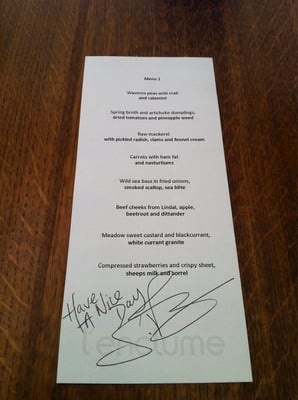 Menu 1
Waveree peas with crab
and calamint
Spring broth and artichoke dumplings,
dried tomatoes and pineapple weed
Raw mackerel
with pickled radish, clams and fennel cream
Carrots with ham fat
and nasturtiums
Wild sea bass in fried onions,
smoked scallop, sea blite
Beef cheeks from Lindal, apple,
beetroot and dittander
Meadow sweet custard and blackcurrant,
white currant granite
Compressed strawberries and crispy sheet,
sheeps milk and sorrel
Have
A Nice
Day
l'enclume